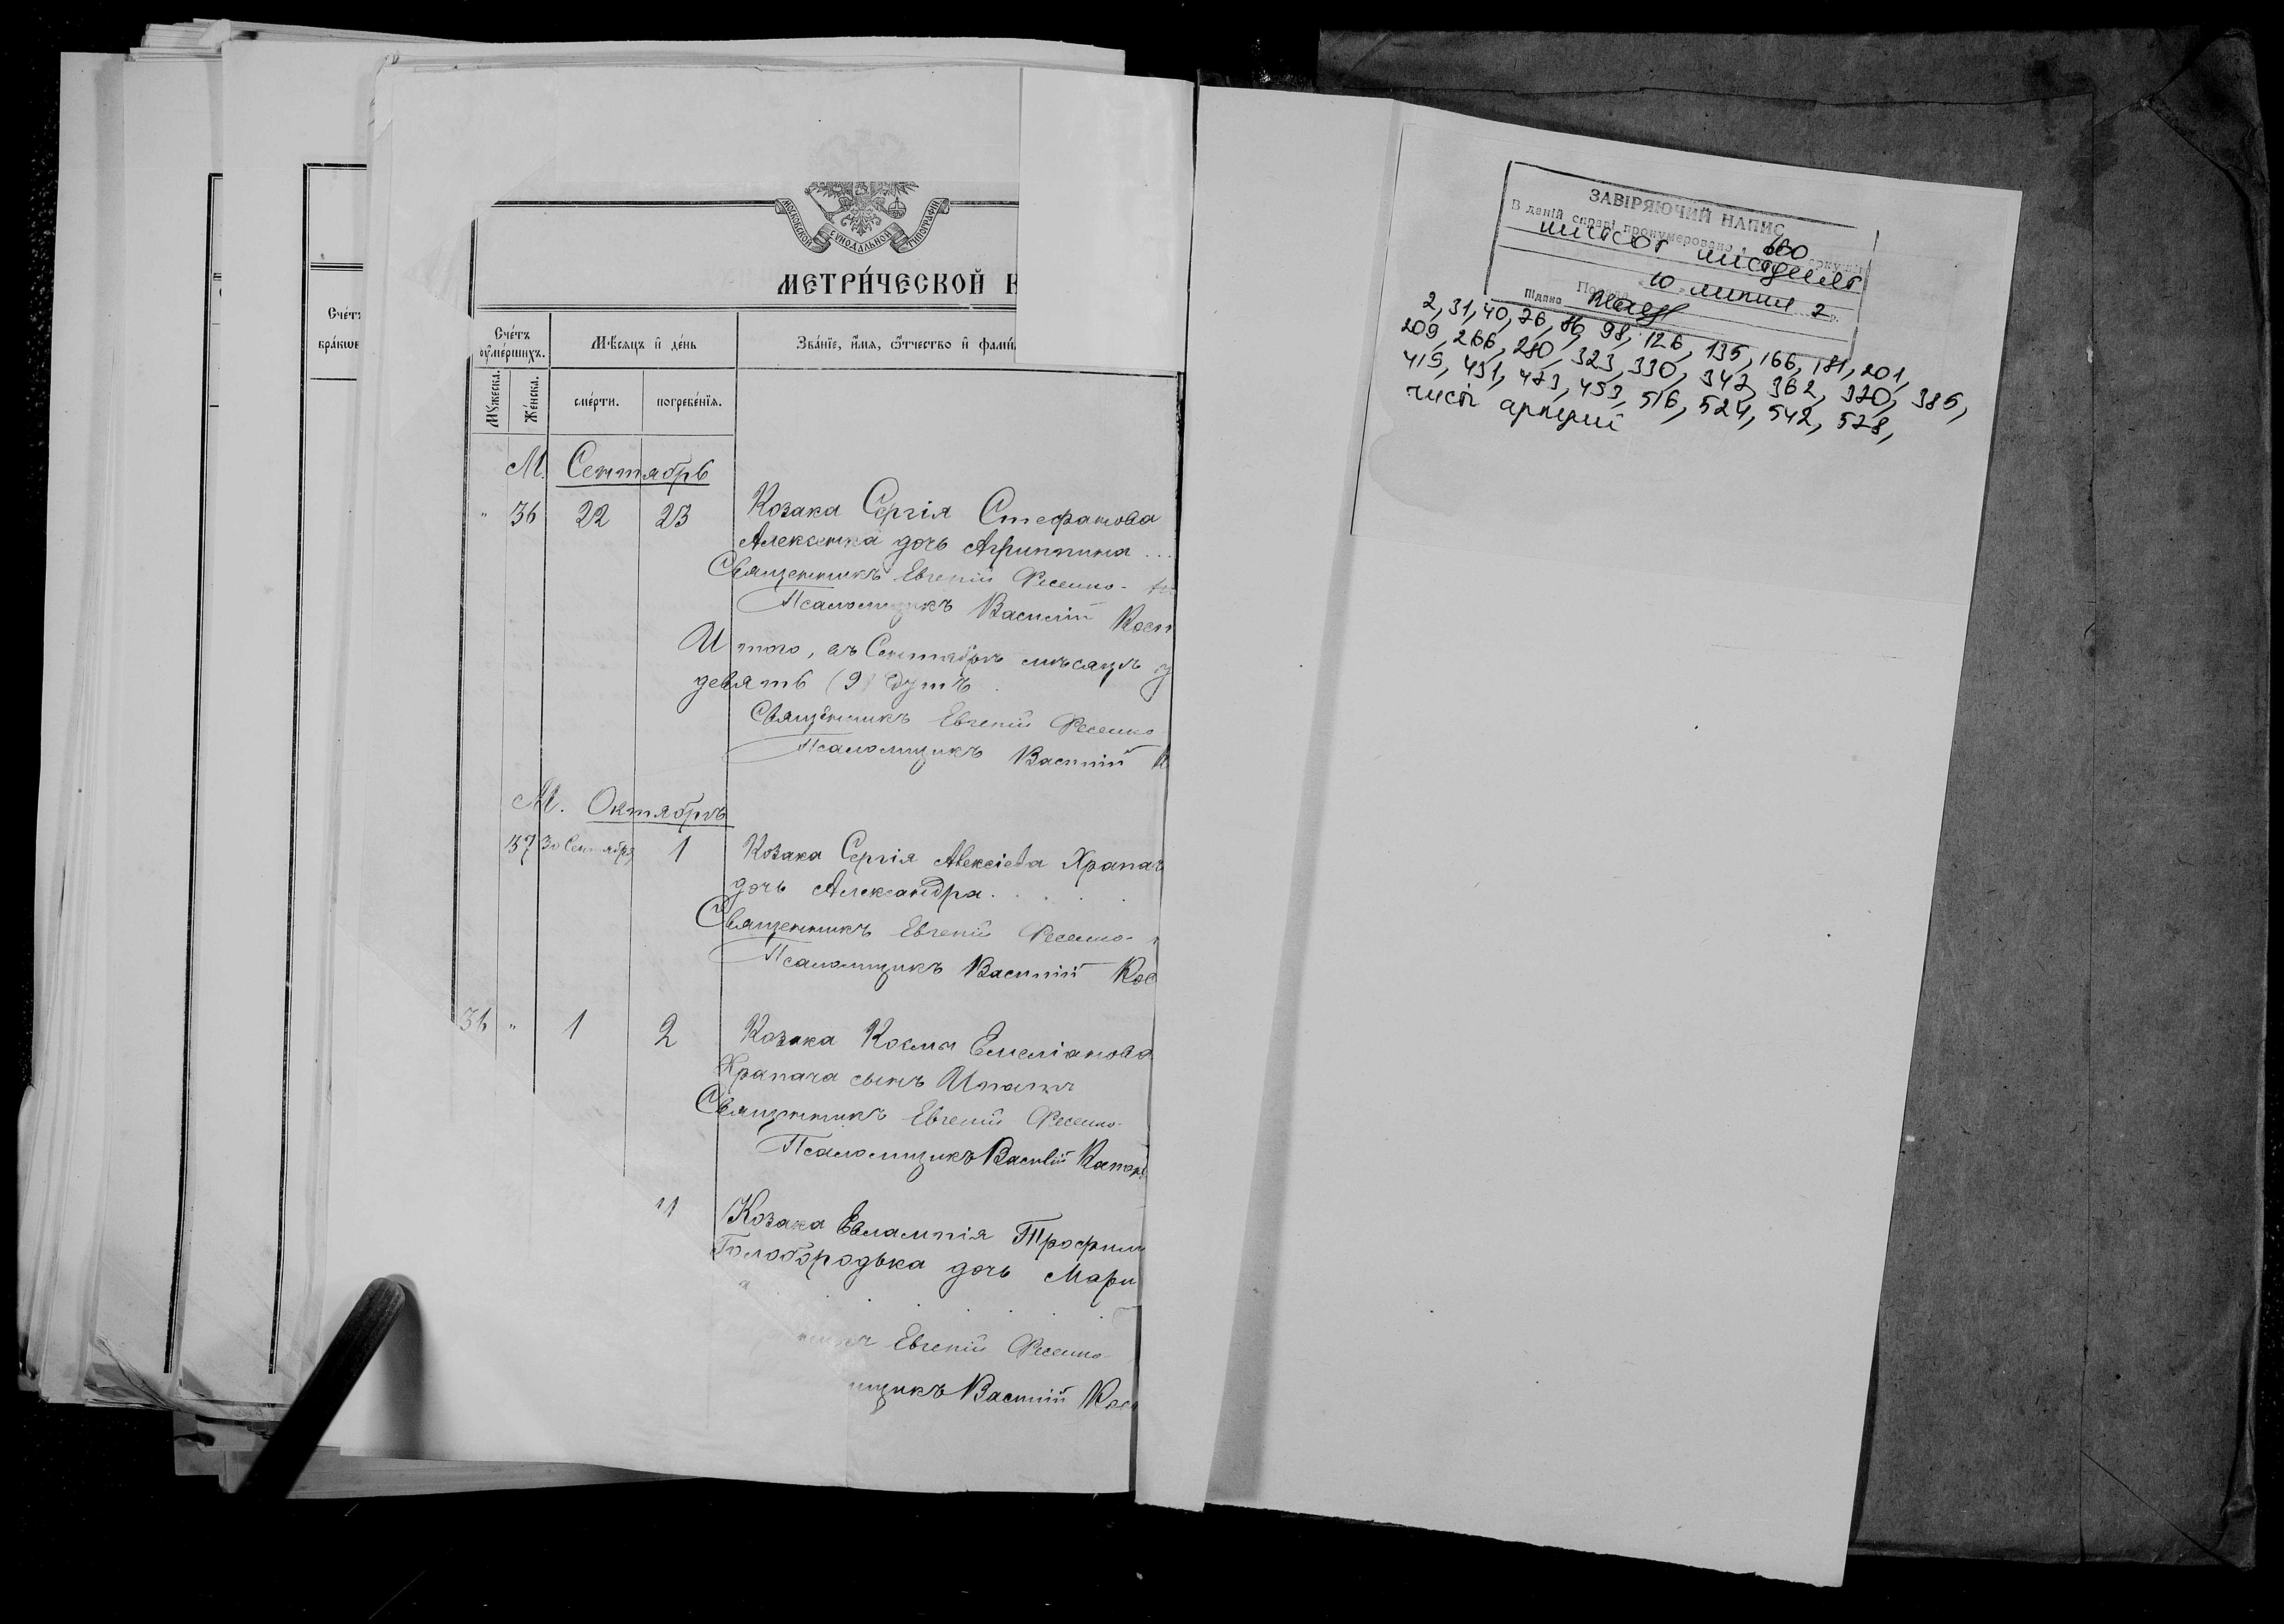 Счётъ
бракове
МОСКОВСКОЙ СУНОДАЛЬНОЙ ТИПОГРАФІИ
МЕТРИ́ЧЕСКОЙ К
Счётъ оумершихъ.
Мѣсяцъ и день
Званіе, имя, отчество и фами
Мужеска.
Женска.
смерти.
погребенія.
М. Сентябрь
" 36 22 23 Козака Сергія Стефанова
дочь Агриппина ...
Священникъ Евгеній Фесенко
Псаломщикъ Василій Кост
Итого, въ Сентябрѣ мѣсяцѣ у
девять (9) душъ
Священникъ Евгеній Фесенко
Псаломщикъ Василій К
М. Октябрь
37 30 Сентября 1 Козака Сергія Алексіева Храпач
дочь Александра.
Священникъ Евгеній Фесенко
Псаломщикъ Василій Кос
36 " 1 2 Козака Космы Емеліанова
Храпача сынъ
Священникъ Евгеній Фесенко
Псаломщикъ Василій
11 Козака Евлампія Трофим
Голобородька дочь Мари
Евгеній Фесенко
мщикъ Василій Кос
ЗАВІРЯЮЧИЙ НАПИС
В даній справі пронумеровано 600
шістсот
10 липня 2 р.
Підпис
2, 31, 40, 76, 86, 98, 126, 135, 166, 181, 201,
209, 266, 280, 323, 330, 347, 362, 370, 385,
415, 431, 473, 453, 516, 524, 542, 578,
чисті аркуші